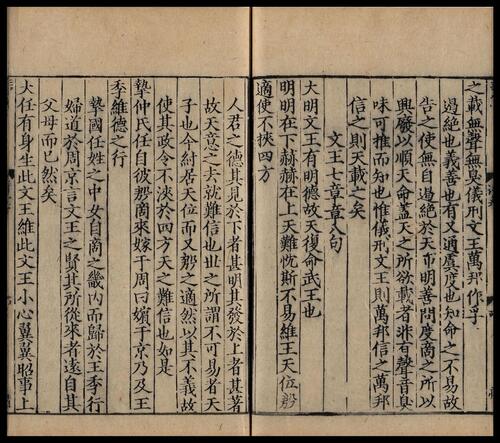 之載無聲無臭儀刑文王萬邦作孚
過絶也義善也有又通虞度也知命之不易故
告之使無自遏絶於天布明善問度商之所以
興廢以順天命蓋天之所欲載者非有聲音臭
味可推而知也惟儀刑文王則萬邦信之萬邦
信之則天載之矣
文王七章章八句
大明文王有明德故天復命武王也
明明在下赫赫在上天難忱斯不易維王天位殷
適使不挾四方
人君之德其見於下者甚明其發於上者甚著
故天意之去就難信也世之所謂不可易者天
子也今紂居天位而又殷之適然以其不義故
使其政令不浹於四方天之難信也如是
摯仲氏任自彼殷商來嫁于周曰嬪于京乃及王
季維德之行
摯國任姓之中女自商之畿内而歸於王季行
婦道於周京言文王之賢其所從來者遠自其
父母而已然矣
大任有身生此文王維此文王小心翼翼昭事上